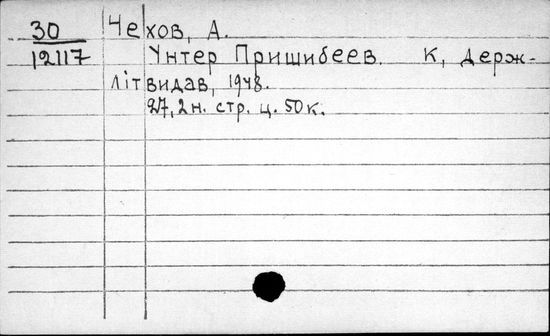 30 Чехов, А.
12117 Унтер Пришибеев. К, Держ-
літвидав, 1948.
27, 2 н. стр. ц. 50 к.